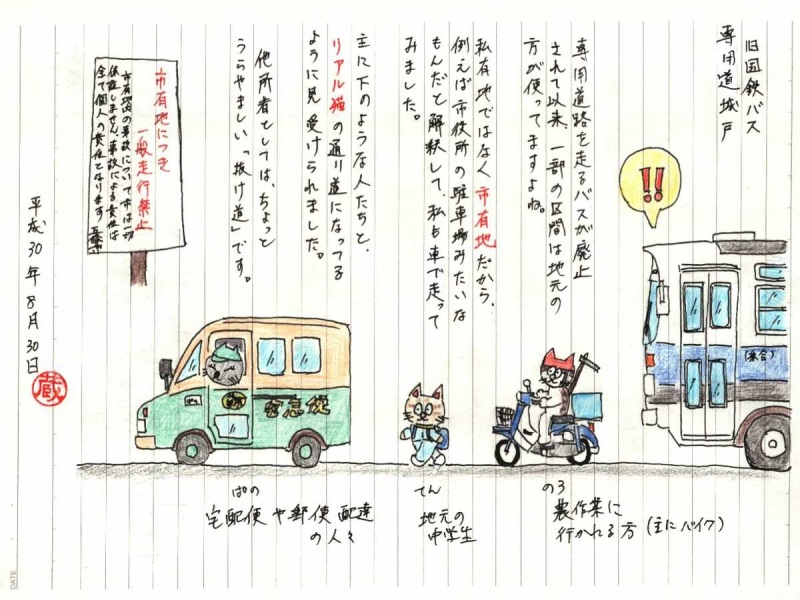 旧国鉄バス
専用道城戸
専用道路を走るバスが廃止
されて以来、一部の区間は地元の
方が使ってますよね。
私有地ではなく市有地だから、
例えば市役所の駐車場みたいな
もんだと解釈して、私も車で走って
みました。
主に下のような人たちと、
リアル猫の通り道になってる
ように見受けられました。
他所者としては、ちょっと
うらやましい「抜け道」です。
市有地につき
一般走行禁止
市有地内の事故について市は一切
保証しません。事故による責任は
全て個人の責任となります
平成30年8月30日
蔵
!!
(集合)
宅急便
のろ
農作業に
行かれる方(主にバイク)
てん
地元の
中学生
ぱの
宅配便や郵便配達
の人々
DATE